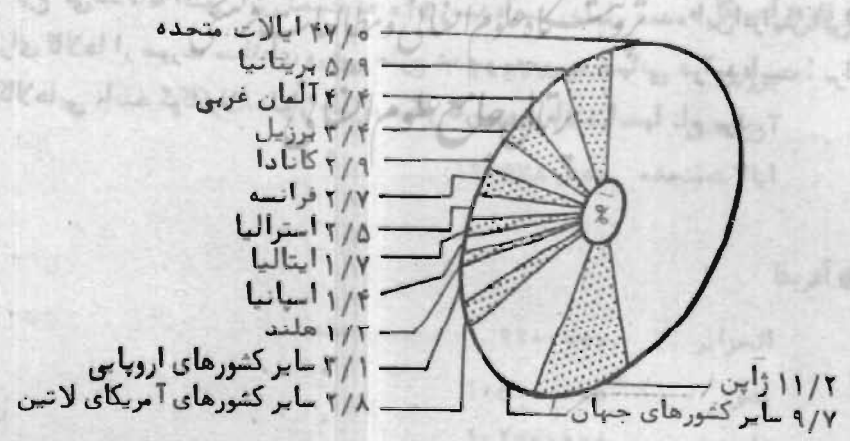 ۴۷/۰ ایالات متحده
۵/۹ بریتانیا
۴/۴ آلمان غربی
۳/۴ برزیل
۲/۹ کانادا
۲/۷ فرانسه
۲/۵ استرالیا
۱/۷ ایتالیا
۱/۴ اسپانیا
۱/۳ هلند
۳/۱ سایر کشورهای اروپایی
۲/۸ سایر کشورهای آمریکای لاتین
%
۱۱/۲ ژاپن
۹/۷ سایر کشورهای جهان